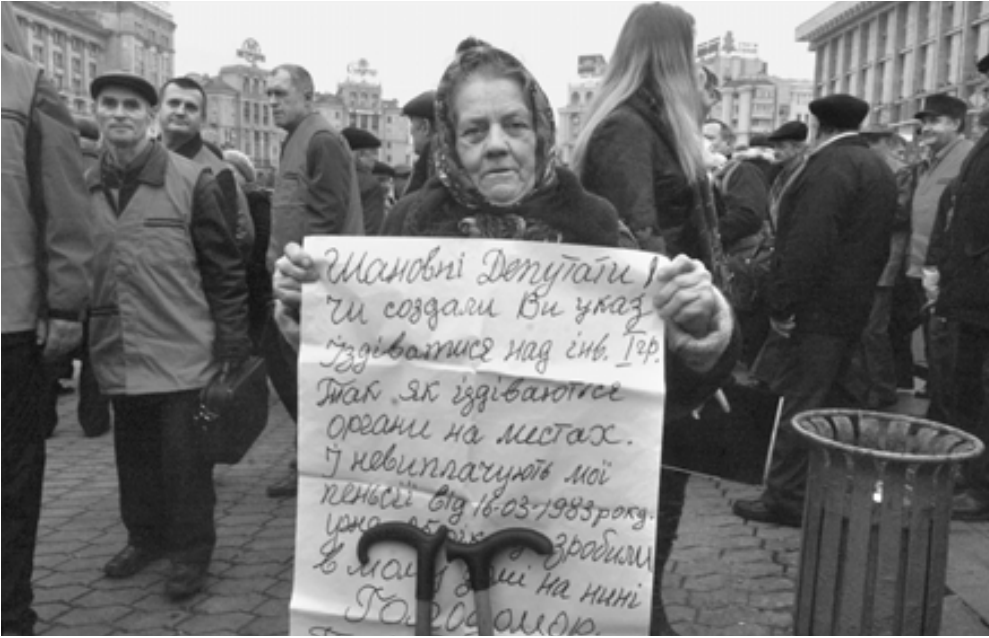 Шановні Депутати!
Чи создали Ви указ
іздіватися над інв. І гр.
Так як іздіваютьсе
органи на местах.
І невиплачують мої
пеньсії від 16-03-1983 року.
зробили
в моїй на нині
Голодомор.